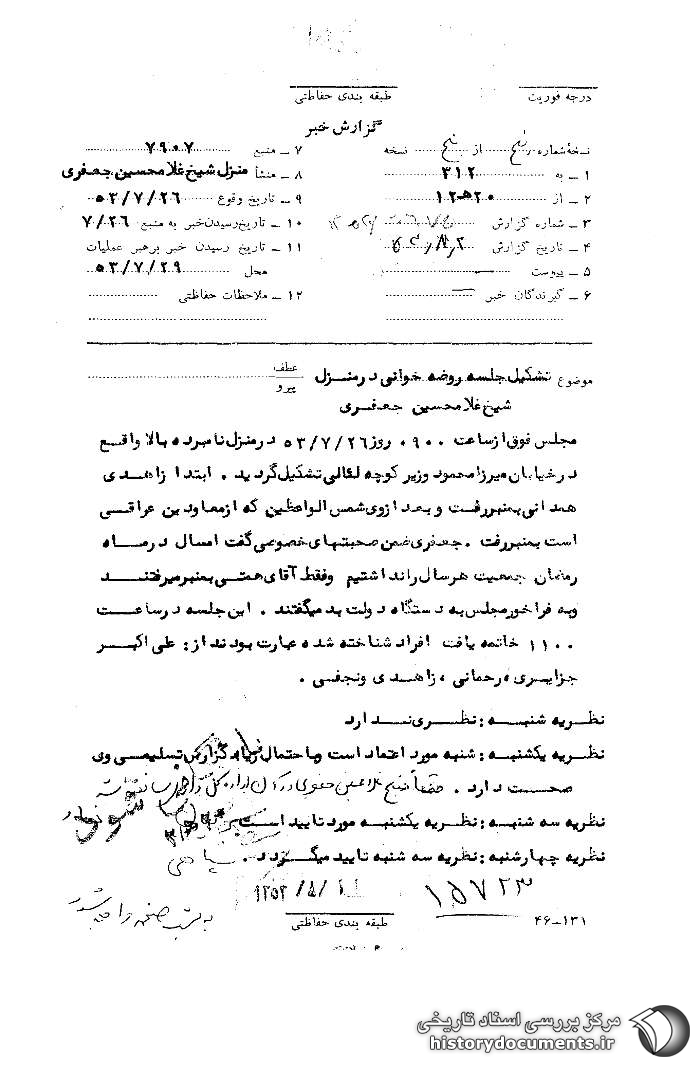 درجه فوریت
طبقه بندی حفاظتی
گزارش خبر
نسخهٔ شماره پنج از پنج نسخه
۱ ــ به ۳۱۲
۲ ــ از ۲۰ ه‍ ۱۲
۳ ــ شماره گزارش
۴ ــ تاریخ گزارش
۵ ــ پیوست
۶ ــ گیرندگان خبر
۷ ــ منبع ۷۹۰۷
۸ ــ منشأ منزل شیخ غلامحسین جعفری
۹ ــ تاریخ وقوع ۵۳/۷/۲۶
۱۰ ــ تاریخ رسیدن خبر به منبع ۷/۲۶
۱۱ ــ تاریخ رسیدن خبر برهبر عملیات
محل ۵۳/۷/۲۹
۱۲ ــ ملاحظات حفاظتی
موضوع تشکیل جلسه روضه خوانی در منزل
شیخ غلامحسین جعفری
عطف
پیرو
مجلس فوق از ساعت ۰۹۰۰ روز ۵۳/۷/۲۶ در منزل نامبرده بالا واقع
در خیابان میرزا محمود وزیر کوچه لقائی تشکیل گردید . ابتدا زاهدی
همدانی بمنبر رفت و بعد از وی شمس الواعظین که از معاودین عراقی
است بمنبر رفت . جعفری ضمن صحبتهای خصوصی گفت امسال در ماه
رمضان جمعیت هر سال را نداشتیم وفقط آقای همتی بمنبر میرفتند
وبه فراخور مجلس به دستگاه دولت بد میگفتند . این جلسه در ساعت
۱۱۰۰ خاتمه یافت افراد شناخته شده عبارت بودند از : علی اکبر
جزایری ، رحمانی ، زاهدی ونجفی .
نظریه شنبه : نظری ندارد
نظریه یکشنبه : شنبه مورد اعتماد است و باحتمال زیاد گزارش تسلیمی وی
صحت دارد .
نظریه سه شنبه : نظریه یکشنبه مورد تایید است
نظریه چهارشنبه : نظریه سه شنبه تایید میگردد . سپاهی
۱۵۷۲۳
۴۶-۱۳۱
طبقه بندی حفاظتی
مرکز بررسی اسناد تاریخی
historydocuments.ir